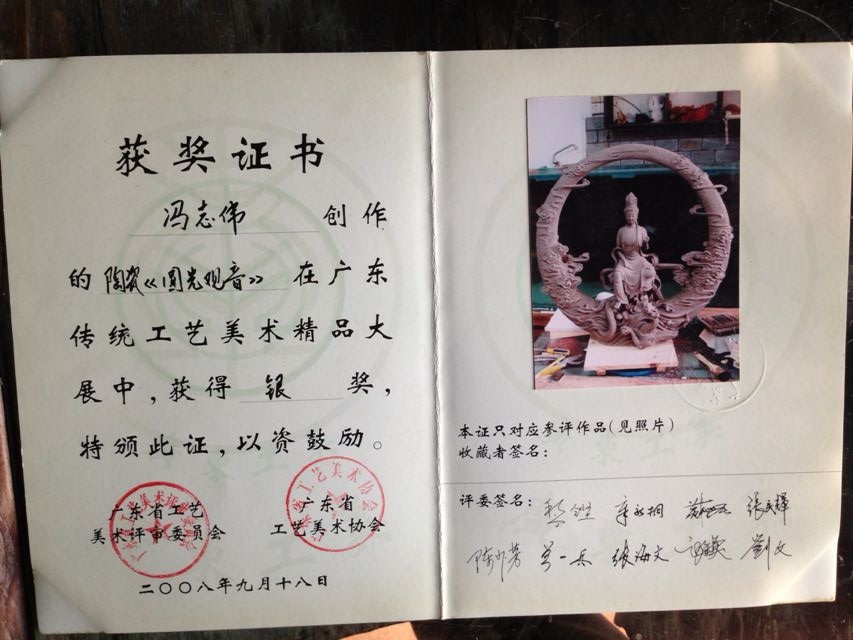 获奖证书
冯志伟 创作
的 陶瓷《圆光观音》 在广东
传统工艺美术精品大
展中,获得 银 奖,
特颁此证,以资鼓励。
广东省工艺
美术评审委员会
广东省
工艺美术协会
二〇〇八年九月十八日
本证只对应参评作品(见照片)
收藏者签名:
评委签名:
張民輝
张海文